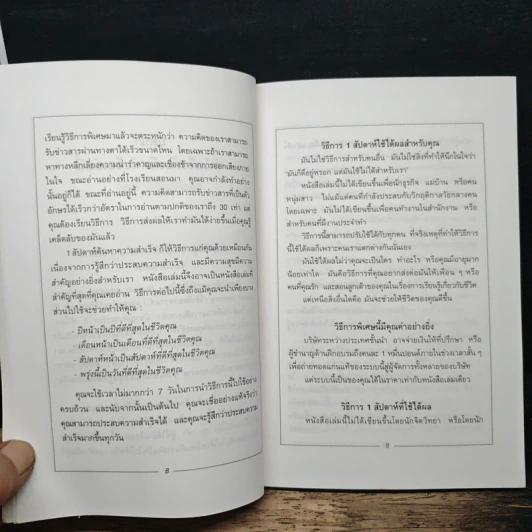 เรียนรู้วิธีการพิเศษมาแล้วจะตระหนักว่า ความคิดของเราสามารถ
รับข่าวสารผ่านทางตาได้เร็วขนาดไหน โดยเฉพาะถ้าเราสามารถ
หาทางหลีกเลี่ยงความน่ารำคาญและเชื่องช้าจากการออกเสียงภาย
ในใจ ขณะอ่านอย่างที่โรงเรียนสอนมา คุณอาจกำลังทำอย่าง
นั้นอยู่ก็ได้ ขณะที่อ่านอยู่นี้ ความคิดสามารถรับข่าวสารที่เป็นตัว
อักษรได้เร็วกว่าอัตราในการอ่านตามปกติของเราถึง 30 เท่า แต่
คุณต้องเรียนวิธีการ วิธีการส่งผลให้เราทำมันได้ง่ายขึ้นเมื่อคุณรู้
เคล็ดลับของมันแล้ว
1 สัปดาห์ค้นหาความสำเร็จ ก็ให้วิธีการแก่คุณด้วยเหมือนกัน
เนื่องจากการรู้สึกว่าประสบความสำเร็จ และมีความสุขมีความ
สำคัญอย่างยิ่งสำหรับเรา หนังสือเล่มนี้จึงอาจเป็นหนังสือเล่มที่
สำคัญที่สุดที่คุณเคยอ่าน วิธีการต่อไปนี้ซึ่งถึงแม้คุณจะนำเพียงบาง
ส่วนไปใช้จะช่วยทำให้คุณ :
- ปีหน้าเป็นปีที่ดีที่สุดในชีวิตคุณ
- เดือนหน้าเป็นเดือนที่ดีที่สุดในชีวิตคุณ
- สัปดาห์หน้าเป็นสัปดาห์ที่ดีที่สุดในชีวิตคุณ
- พรุ่งนี้เป็นวันที่ดีที่สุดในชีวิตคุณ
คุณจะใช้เวลาไม่มากกว่า 7 วันในการนำวิธีการนี้ไปใช้อย่าง
ครบถ้วน และนับจากนั้นเป็นต้นไป คุณจะเชื่ออย่างแท้จริงว่า
คุณสามารถประสบความสำเร็จได้ และคุณจะรู้สึกว่าประสบความ
สำเร็จมากขึ้นทุกวัน
8
วิธีการ 1 สัปดาห์ใช้ได้ผลสำหรับคุณ
มันไม่ใช่วิธีการสำหรับคนอื่น มันไม่ใช่สิ่งที่ทำให้นึกในใจว่า
มันก็ดีอยู่หรอก แต่มันใช้ไม่ได้สำหรับเรา'
หนังสือเล่มนี้ไม่ได้เขียนขึ้นเพื่อนักธุรกิจ แม่บ้าน หรือคน
หนุ่มสาว ไม่แม้แต่คนที่กำลังประสบกับวิกฤติกาลวัยกลางคน
โดยเฉพาะ มันไม่ได้เขียนขึ้นเพื่อคนทำงานในสำนักงาน หรือ
สำหรับคนที่มีงานประจำทำ
วิธีการนี้สามารถปรับใช้ได้กับทุกคน ที่จริงเหตุที่ทำให้วิธีการ
นี้ใช้ได้ผลก็เพราะคนเราแตกต่างกันนั่นเอง
มันใช้ได้ผลไม่ว่าคุณจะเป็นใคร ทำอะไร หรือคุณมีอายุมาก
น้อยเท่าใด มันคือวิธีการที่คุณอยากส่งต่อมันให้เพื่อน ๆ หรือ
คนที่คุณรัก และสอนลูกเต้าของคุณในเรื่องการเรียนรู้เกี่ยวกับชีวิต
แต่เหนือสิ่งอื่นใดคือ มันจะช่วยให้ชีวิตของคุณดีขึ้น
วิธีการพิเศษนี้มีคุณค่าอย่างยิ่ง
บริษัทระหว่างประเทศชั้นนำ อาจจ่ายเงินให้ที่ปรึกษา หรือ
ผู้ชำนาญด้านฝึกอบรมถึงคนละ 1 หมื่นปอนด์ภายในช่วงเวลาสั้น ๆ
เพื่อถ่ายทอดแก่นแท้ของระบบนี้สู่ผู้จัดการทั้งหลายของบริษัท
แต่ระบบนี้เป็นของคุณได้ในราคาเท่ากับหนังสือเล่มเดียว
วิธีการ 1 สัปดาห์ที่ใช้ได้ผล
หนังสือเล่มนี้ไม่ได้เขียนขึ้นโดยนักจิตวิทยา หรือโดยนัก